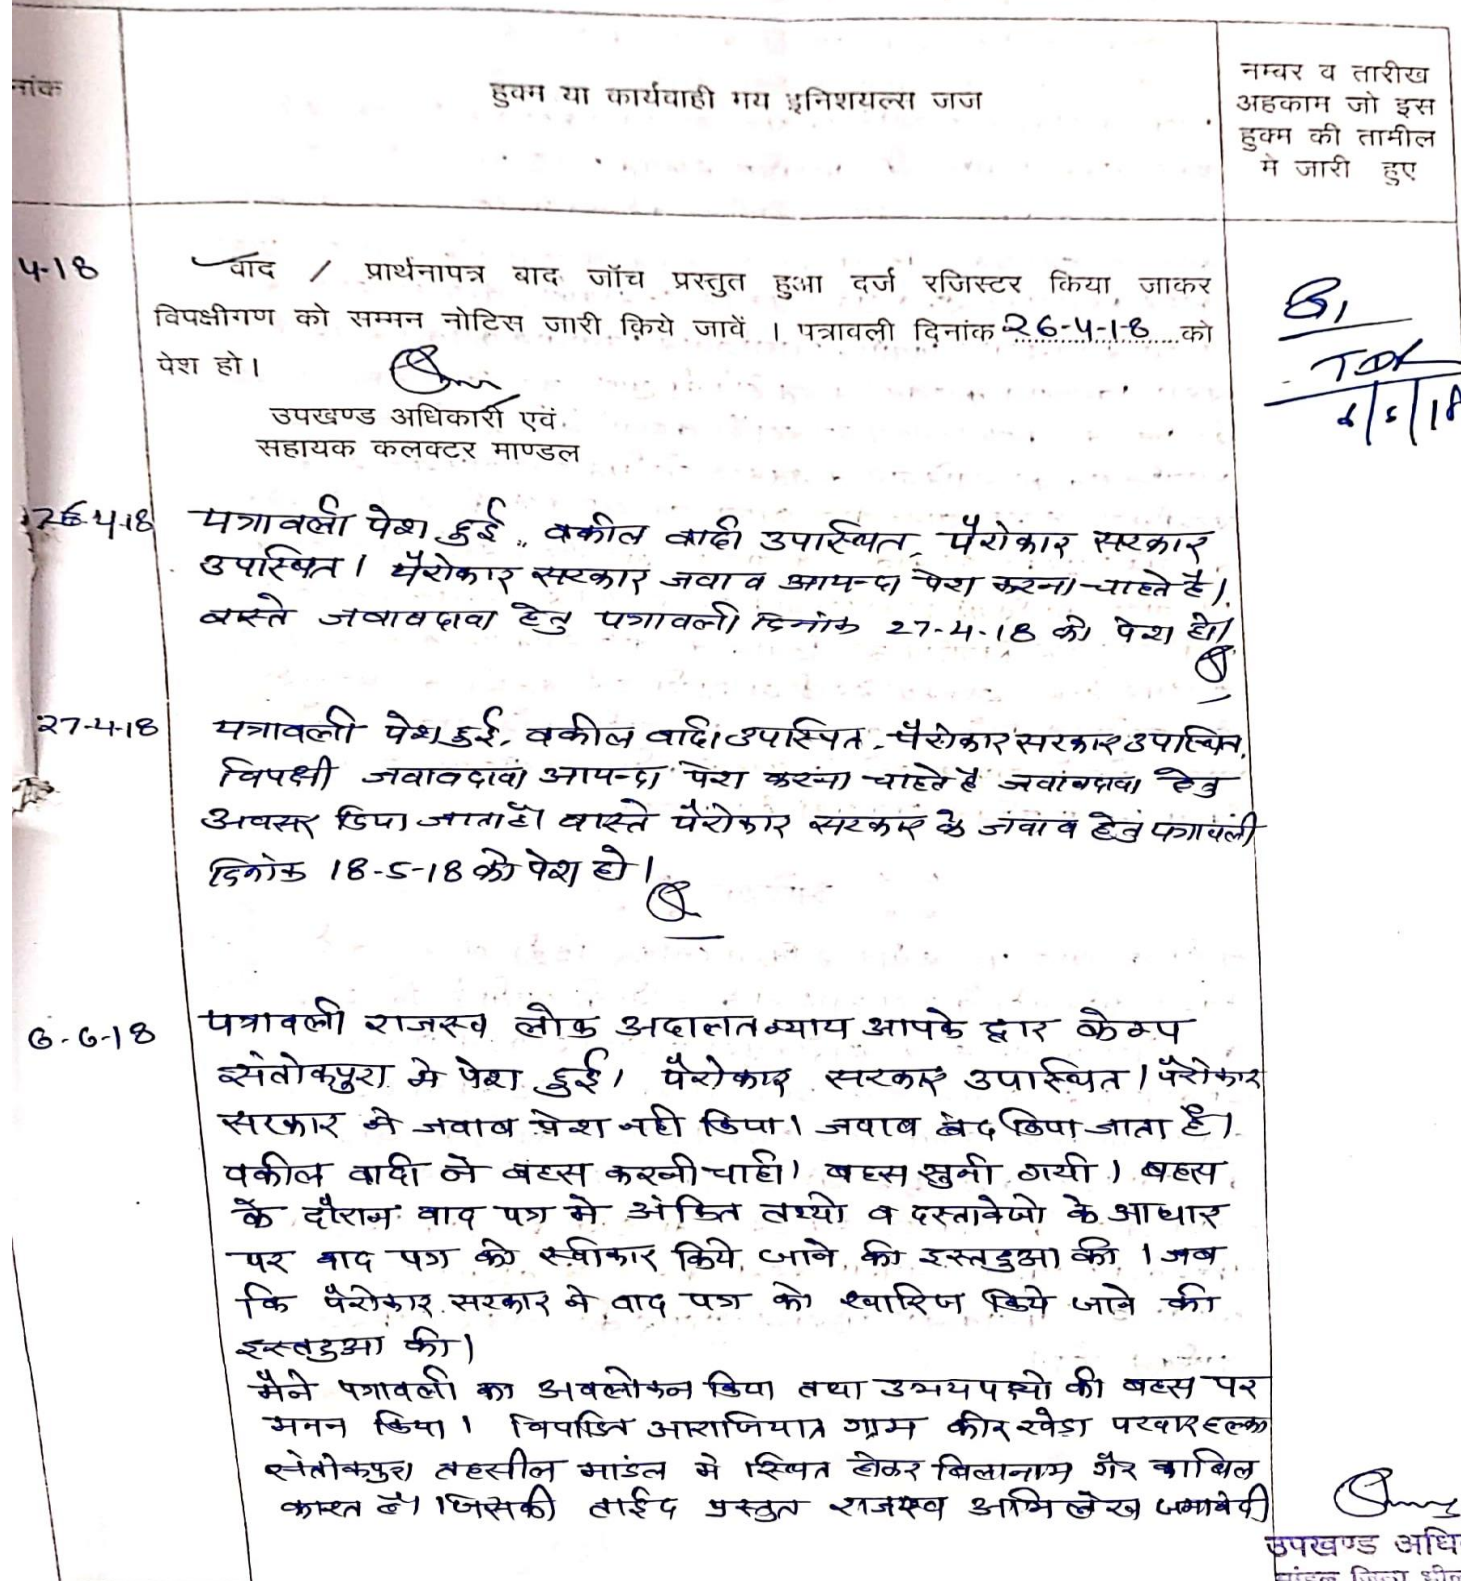 नांक
हुक्म या कार्यवाही मय इनिशयल्स जज
नम्बर व तारीख
अहकाम जो इस
हुक्म की तामील
मे जारी हुए
4-18
वाद / प्रार्थनापत्र बाद जॉच प्रस्तुत हुआ दर्ज रजिस्टर किया जाकर
विपक्षीगण को सम्मन नोटिस जारी किये जावें । पत्रावली दिनांक 26-4-18 को
पेश हो।
उपखण्ड अधिकारी एवं
सहायक कलक्टर माण्डल
26-4-18
पत्रावली पेश हुई, वकील वादी उपस्थित, पैरोकार सरकार
उपस्थित। पैरोकार सरकार जवाब आयन्दा पेश करना चाहते है।
वास्ते जवाबदावा हेतु पत्रावली दिनांक 27-4-18 को पेश हो।
27-4-18
पत्रावली पेश हुई, वकील वादी उपस्थित, पैरोकार सरकार उपस्थित,
विपक्षी जवाबदावा आयन्दा पेश करना चाहते है जवाबदावा हेतु
अवसर दिया जाता है। वास्ते पैरोकार सरकार के जवाब हेतु पत्रावली
दिनांक 18-5-18 को पेश हो।
6-6-18
पत्रावली राजस्व लोक अदालत न्याय आपके द्वार केम्प
संतोकपुरा मे पेश हुई। पैरोकार सरकार उपस्थित। पैरोकार
सरकार ने जवाब पेश नही किया। जवाब बंद किया जाता है।
वकील वादी ने बहस करनी चाही। बहस सुनी गयी। बहस
के दौरान वाद पत्र मे अंकित तथ्यो व दस्तावेजो के आधार
पर वाद पत्र को स्वीकार किये जाने की इस्तदुआ की । जब
कि पैरोकार सरकार ने वाद पत्र को खारिज किये जाने की
इस्तदुआ की।
मैने पत्रावली का अवलोकन किया तथा उभयपक्षो की बहस पर
मनन किया। आराजियात ग्राम कीरखेडा पटवार हल्का
संतोकपुरा तहसील मांडल मे स्थित होकर बिलानाम गैर काबिल
काश्त है। जिसकी ताईद प्रस्तुत राजस्व अभिलेख जमाबंदी
उपखण्ड अधि